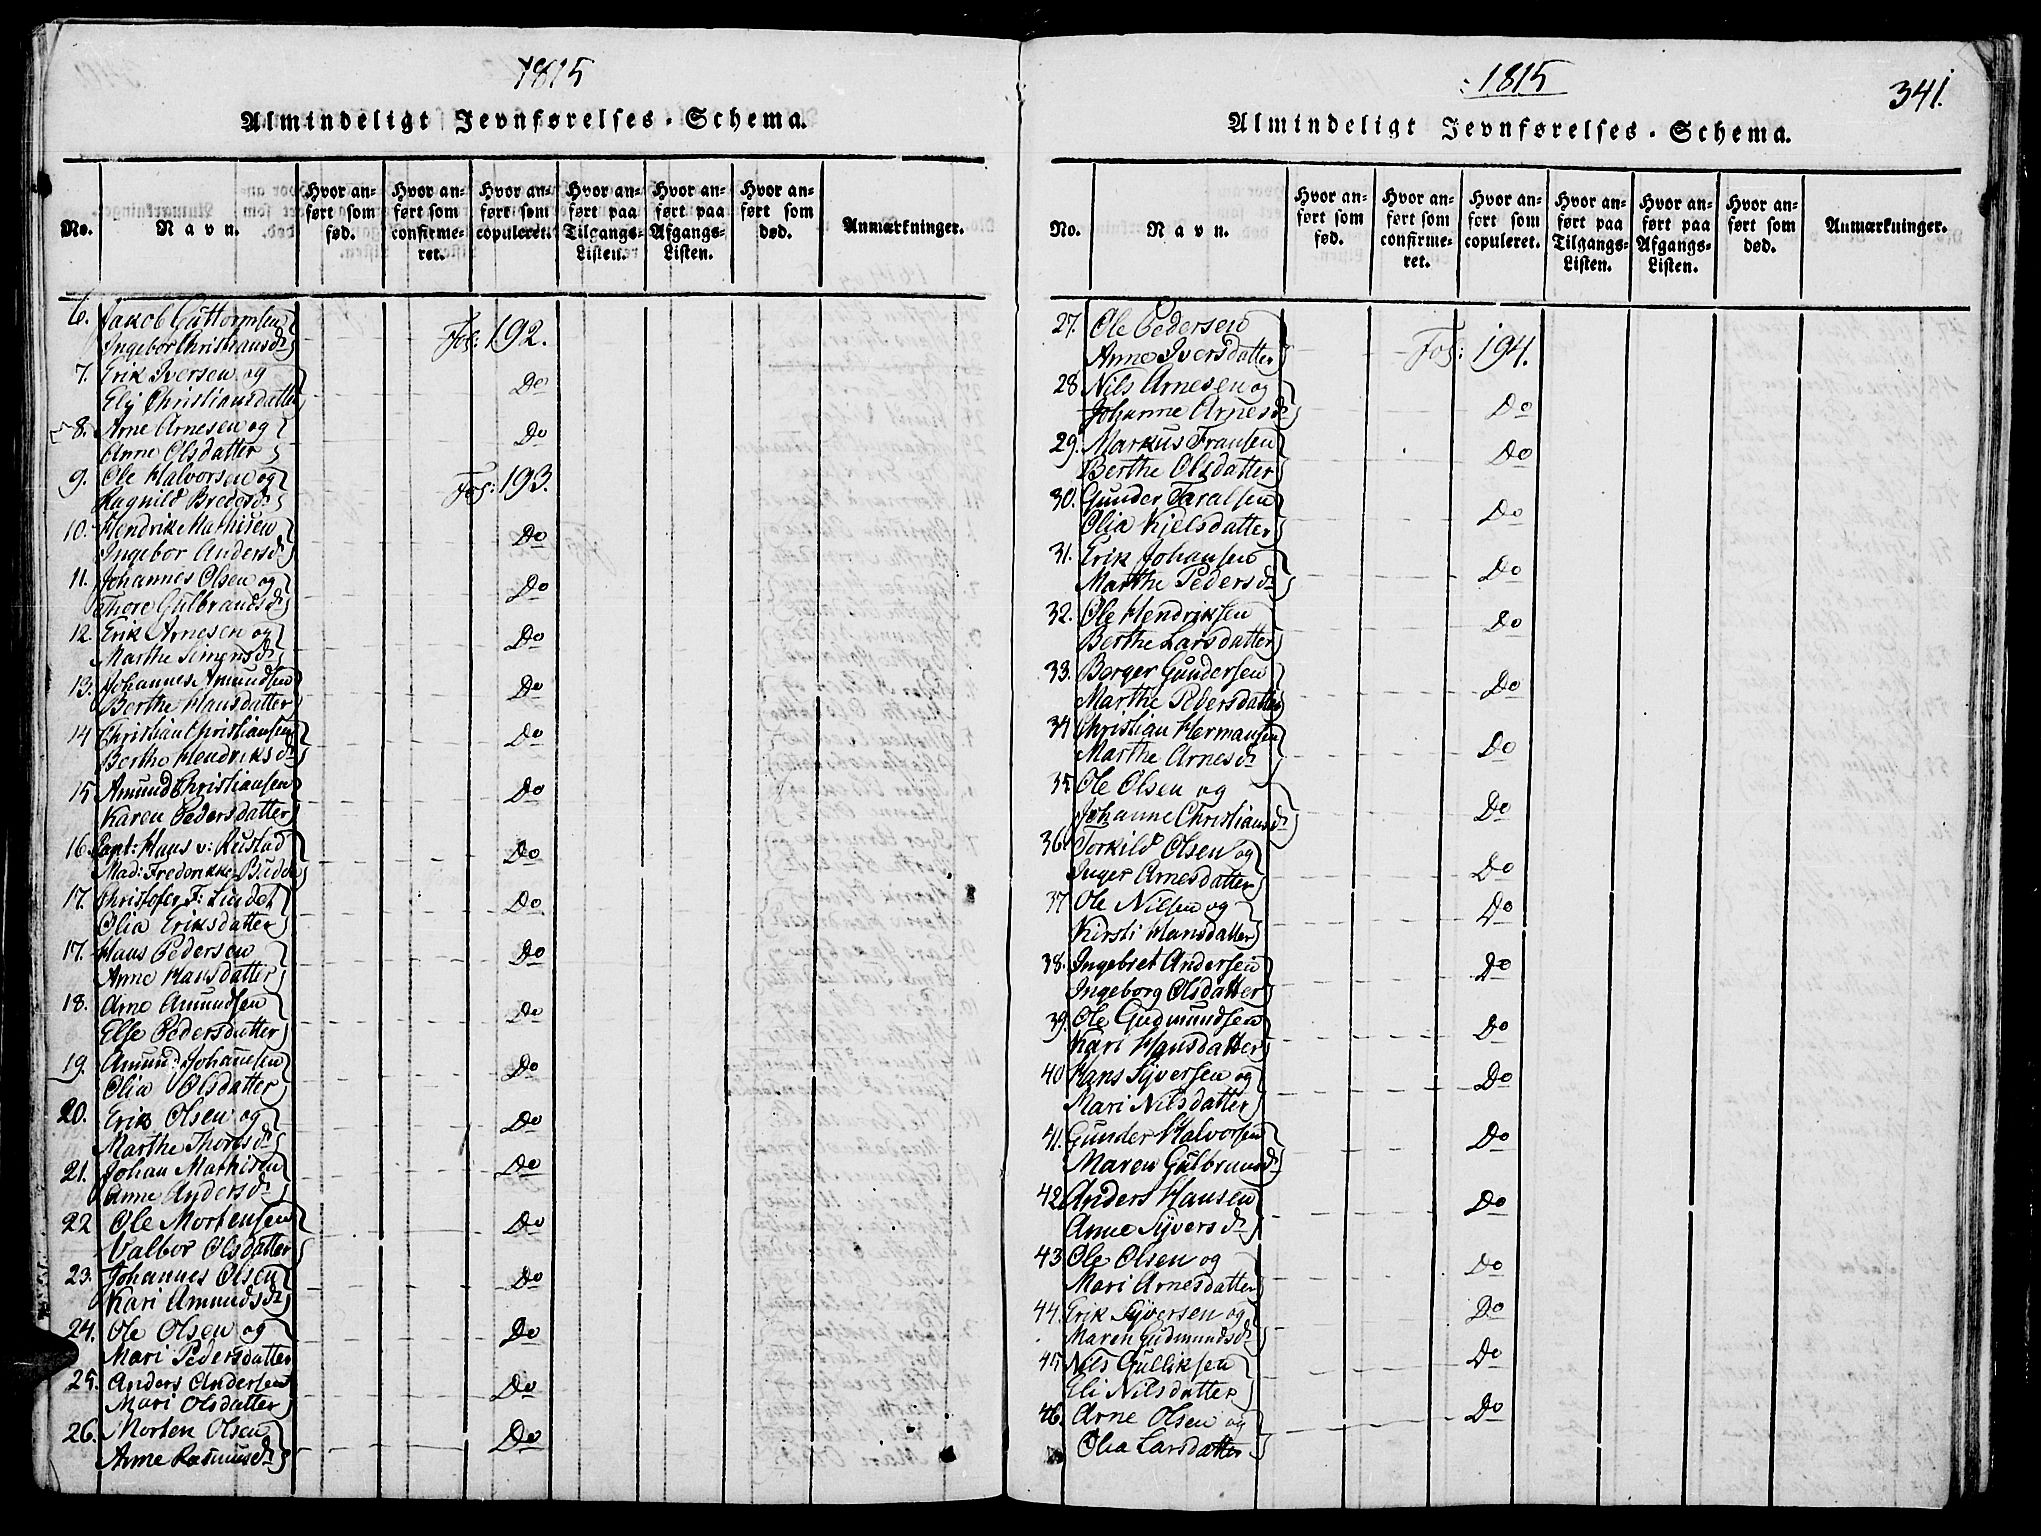 1815
Almindeligt Jevnførelses-Schema.
No.
Navn.
Hvor an-
ført som
fød.
Hvor an-
ført som
confirme-
ret.
Hvor an-
ført som
copuleret.
Hvor an-
ført paa
Tilgangs-
Listen.
Hvor an-
ført paa
Afgangs-
Listen.
Hvor an-
ført som
død.
Anmærkninger.
6. Jakob Guttormsen
Ingebor Christiansdr Fol: 192.
7. Erik Iversen og
Elij Christiansdatter Do
8. Arne Arnesen og
Anne Olsdatter Do
9. Ole Halvorsen og
Ragnild Bredesdr Fol: 193.
10. Hendrik Mathisen
Ingebor Andersdr Do
11. Johannes Olsen og
Thore Gulbrandsdr Do
12. Erik Arnesen og
Marthe Simensdr Do
13. Johannes Amundsen
Berthe Hansdatter Do
14 Christian Christiansen
Berthe Hendriksdr Do
15 Amund Christiansen
Karen Pedersdatter Do
16. Capt: Hans v: Rustad
Mad: Frederikke Budde Do
17. Christofer F: Lindet
Olia Eriksdatter Do
17. Hans Pedersen
Anne Hansdatter Do
18. Arne Amundsen
Else Pedersdatter Do
19. Amund Johannsen
Olia Olsdatter Do
20. Erik Olsen og
Marthe Thoresdr Do
21. Johan Mathisen
Anne Andersdr Do
22 Ole Mortensen
Valbor Olsdatter Do
23. Johannes Olsen
Kari Amundsdr Do
24. Ole Olsen og
Mari Pedersdatter Do
25. Anders Andersen
Mari Olsdatter Do
26. Morten Olsen
Anne Rasmusdr Do
1815
341.
Almindeligt Jevnførelses-Schema.
No.
Navn.
Hvor an-
ført som
fød.
Hvor an-
ført som
confirme-
ret.
Hvor an-
ført som
copuleret.
Hvor an-
ført paa
Tilgangs-
Listen.
Hvor an-
ført paa
Afgangs-
Listen.
Hvor an-
ført som
død.
Anmærkninger.
27. Ole Pedersen
Anne Iversdatter Fol: 194.
28 Nils Arnesen og
Johanne Arnesdr Do
29. Markus Fransen
Berthe Olsdatter Do
30. Gunder Taralsen
Olia Kjelsdatter Do
31. Erik Johansen
Marthe Pedersdr Do
32. Ole Hendriksen
Berthe Larsdatter Do
33. Borger Gundersen
Marthe Pedersdatter Do
34 Christian Hermansen
Marthe Arnesdr Do
35 Ole Olsen og
Johanne Christiansdr Do
36. Torkild Olsen og
Inger Arnesdatter Do
37 Ole Nilsen og
Kirsti Hansdatter Do
38. Ingebret Andersen
Ingeborg Olsdatter Do
39. Ole Gudmundsen
Kari Hansdatter Do
40 Hans Syversen og
Mari Nilsdatter Do
41. Gunder Halvorsen
Maren Gulbransdr Do
42. Anders Hansen
Anne Syversdr Do
43 Ole Olsen og
Mari Arnesdatter Do
44. Erik Syversen og
Maren Gudmundsdr Do
45 Nils Gulliksen
Eli Nilsdatter Do
46. Arne Olsen og
Olia Larsdatter Do